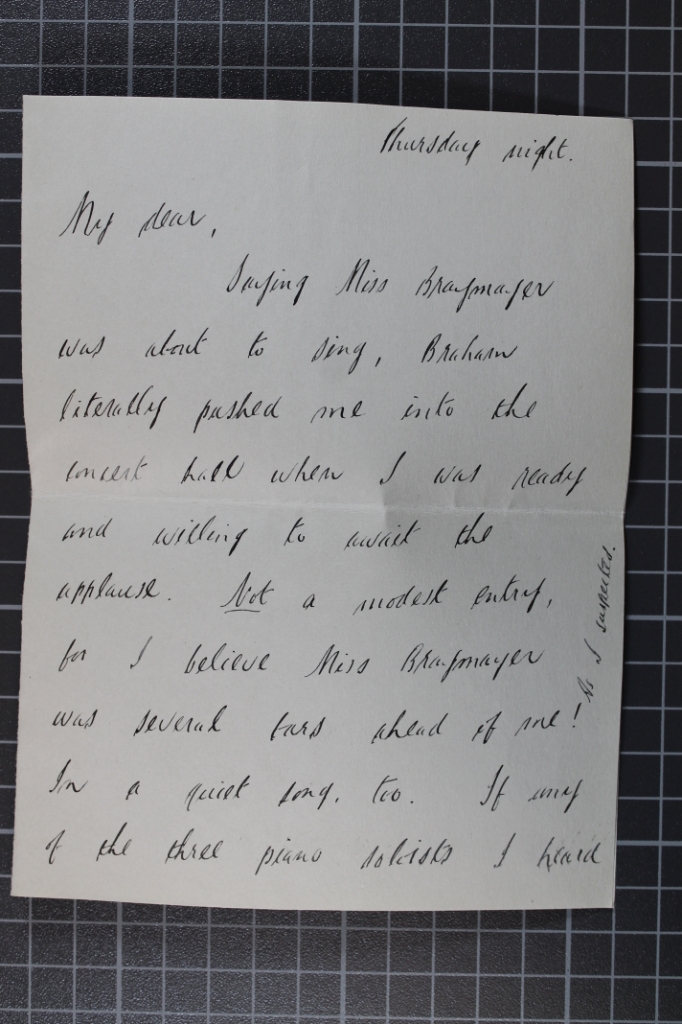 Thursday night.
My dear,
Saying Miss Braymayer
was about to sing, Braham
literally pushed me into the
concert hall when I was ready
and willing to await the
applause. Not a modest entry,
for I believe Miss Braymayer
was several bars ahead of me!
As I suspected.
In a quiet song, too. If any
of the three piano soloists I heard